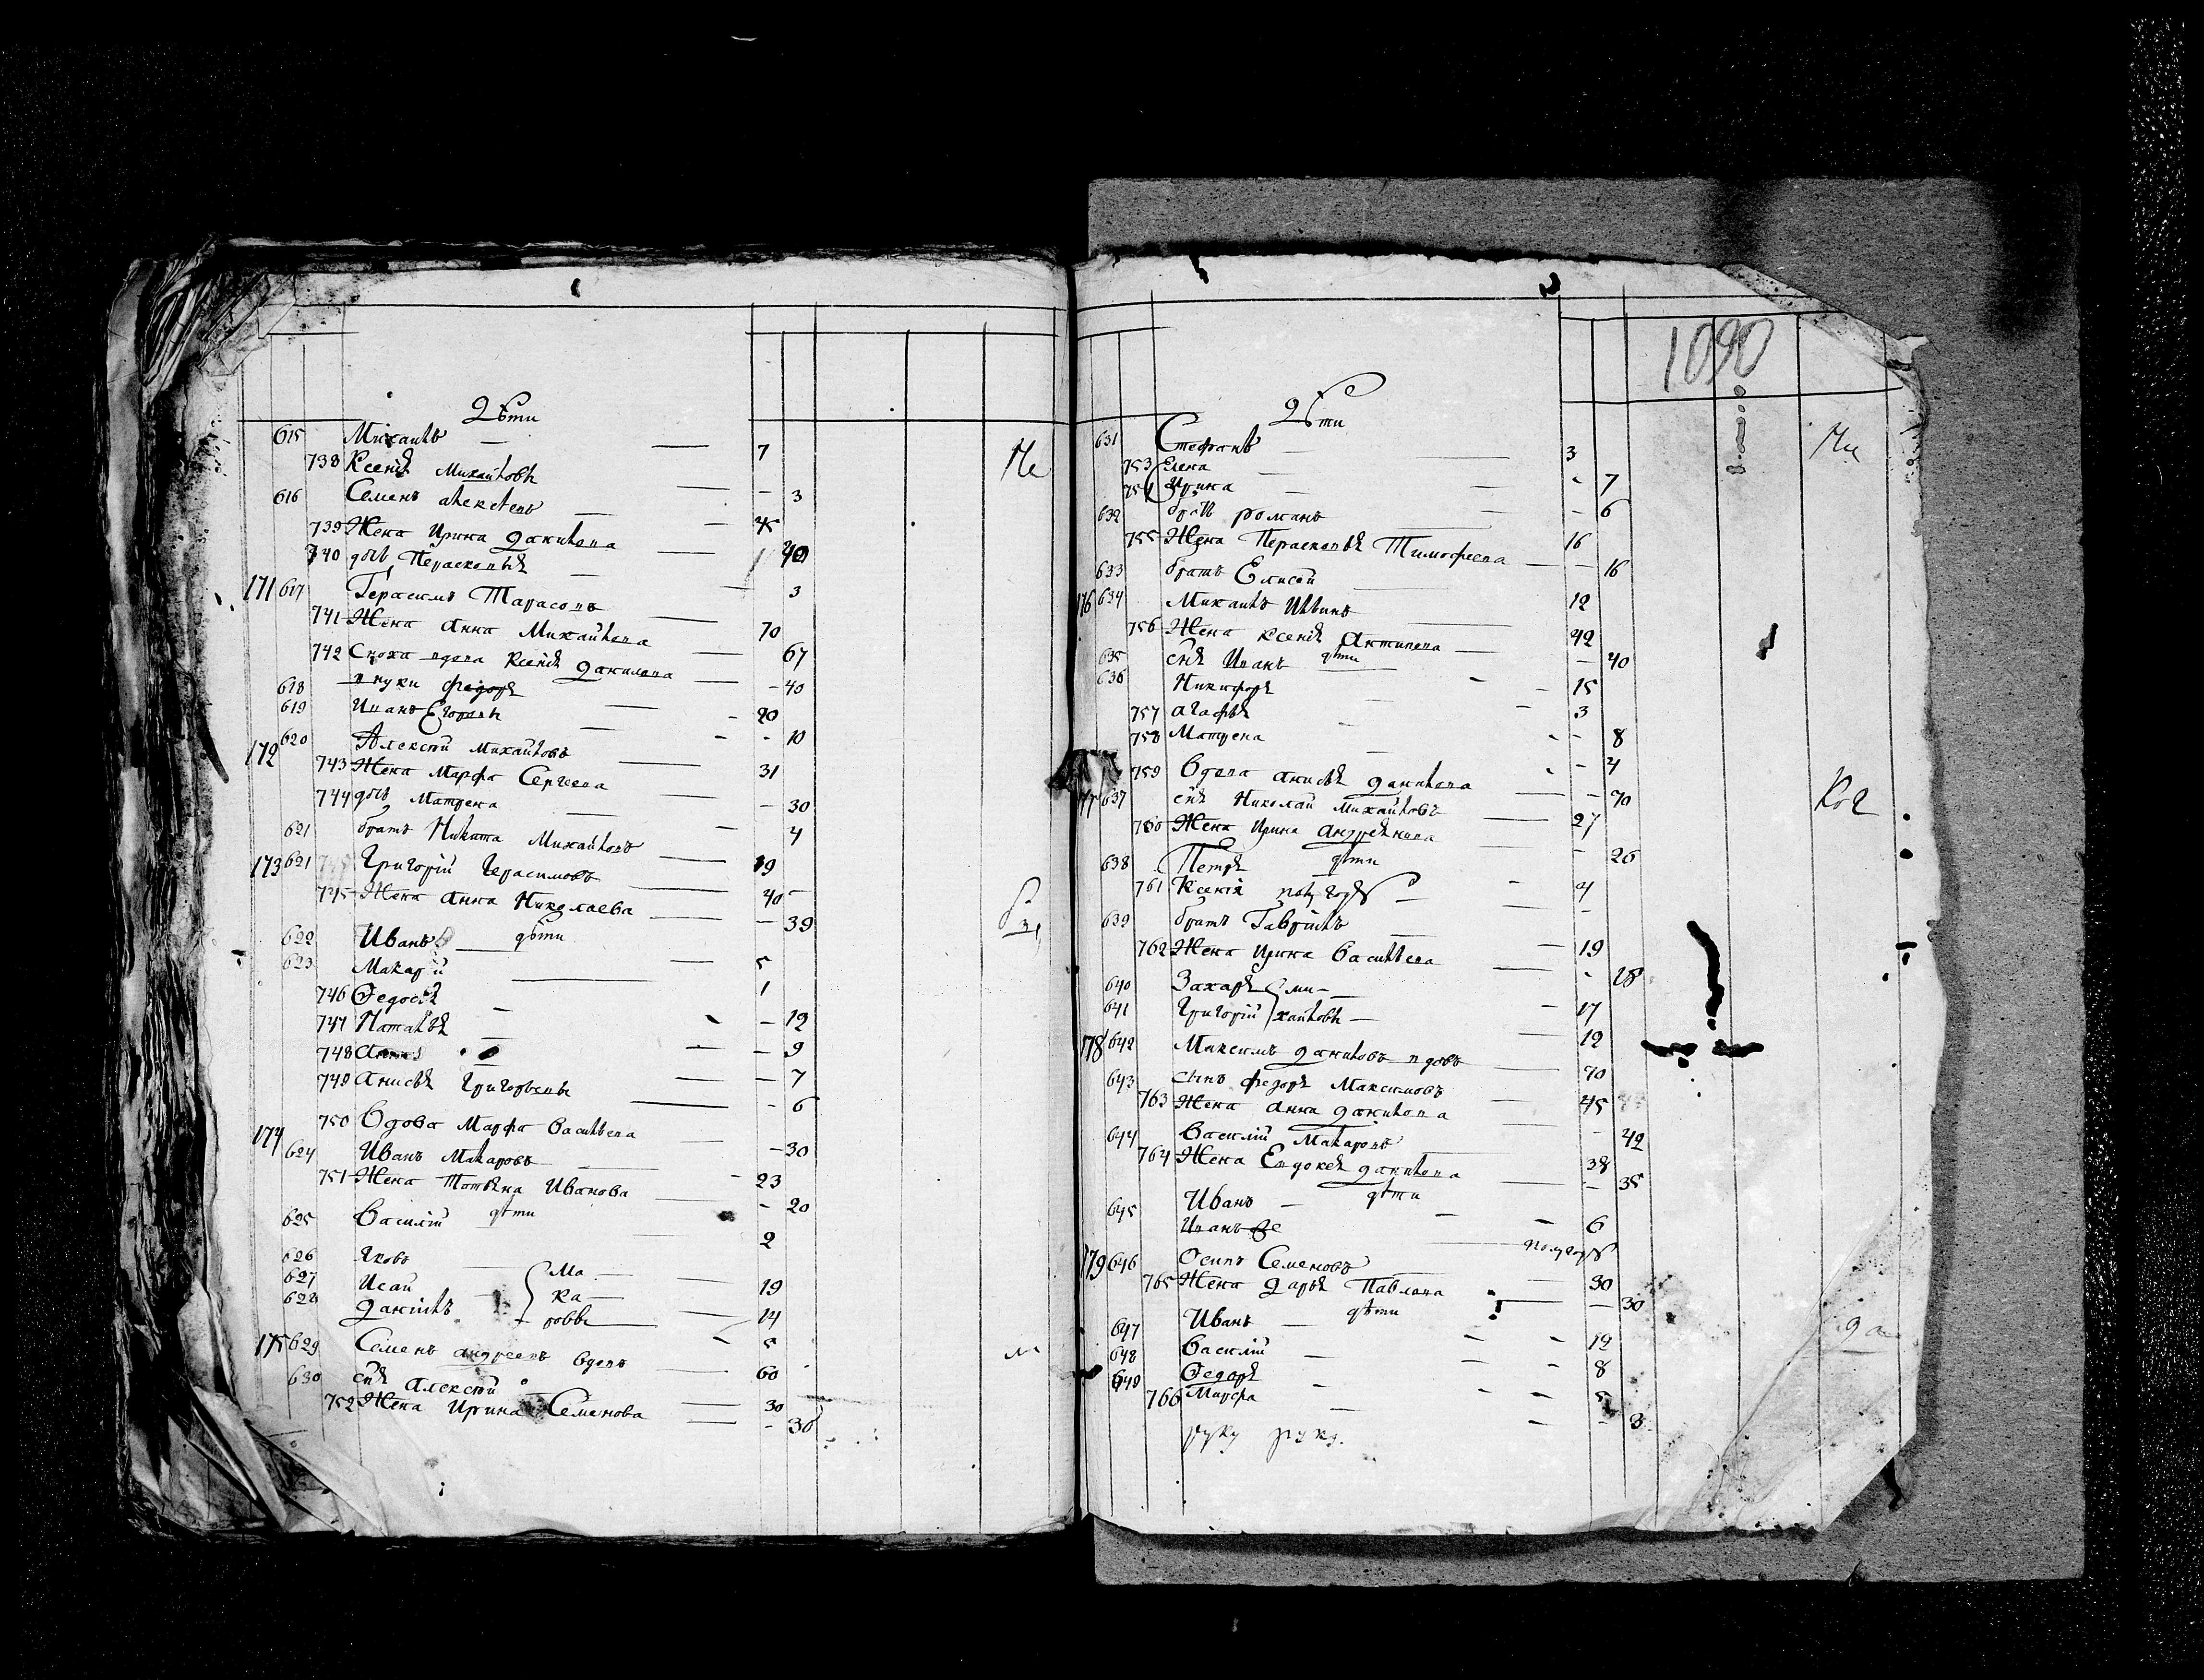 Дѣти
615 Михаилъ 7
738 Ксенія Михайловы 3
616 Семенъ Алексѣевъ 45
739 Жена Ирина Данилова 40
740 дочь Перасковья 3
171 617 Герасимъ Тарасовъ 70
741 Жена Анна Михайлова 67
742 Сноха вдова Ксенія Данилова 40
618 внуки Федоръ 20
619 Иванъ Егоровы 10
172 620 Алексѣй Михайловъ 31
743 Жена Марфа Сергеева 30
744 дочь Матрена 4
621 братъ Никита Михайловъ 19
173 621 Григорій Герасимовъ 40
745 Жена Анна Николаева 39
дѣти
622 Иванъ 5
623 Макарій 1
746 Федосья 12
747 Наталья 9
748 Анна 7
749 Анисья Григорьевы 6
750 Вдова Марфа Васильева 30
174 624 Иванъ Макаровъ 23
751 Жена Татьяна Иванова 20
дѣти
625 Василій 2
626 Яковъ 19
627 Исай 14
628 Данилъ 5
Макаровы
175 629 Семенъ Андреевъ вдовъ 60
630 сынъ Алексѣй 30
752 Жена Ирина Семенова 30
Не
1090
Дѣти
631 Стефанъ 3
753 Елена 7
754 Ирина 6
632 братъ Романъ 16
755 Жена Перасковья Тимофеева 16
633 братъ Елисѣй 12
176 634 Михаилъ Ильинъ 42
756 Жена Ксенія Антипова 40
дѣти
635 сынъ Иванъ 15
636 Никифоръ 3
757 Агафья 8
758 Матрена 4
759 Вдова Анисья Данилова 70
177 637 сынъ Николай Михайловъ 27
760 Жена Ирина Андреянова 26
дѣти
638 Петръ 4
761 Ксенія полугода
639 братъ Гаврилъ 19
762 Жена Ирина Васильева 18
640 Захаръ 17
641 Григорій 12
Михайловы
178 642 Максимъ Даниловъ вдовъ 70
643 сынъ Федоръ Максимовъ 45
763 Жена Анна Данилова 42
644 Василій Макаровъ 38
764 Жена Евдокея Данилова 35
дѣти
645 Иванъ 6
Иванъ же полугода
179 646 Осипъ Семеновъ 30
765 Жена Дарья Павлова 30
дѣти
647 Иванъ 12
648 Василій 8
649 Федоръ 5
766 Марфа 3
руку
Ни
Ко
да